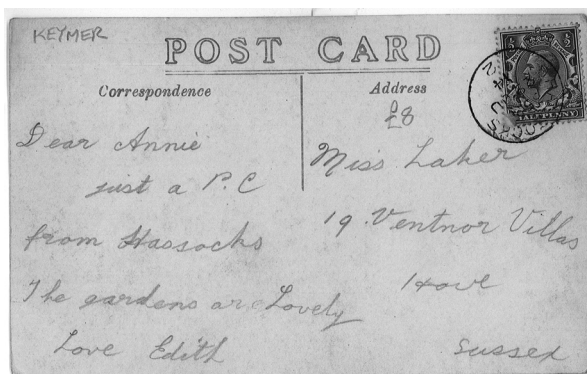 KEYMER
POST CARD
Correspondence
Address
£8
Dear Annie
just a P.C
from Hassocks
The gardens are Lovely
Love Edith
Miss Laker
19. Ventnor Villas
Hove
Sussex
HALFPENNY